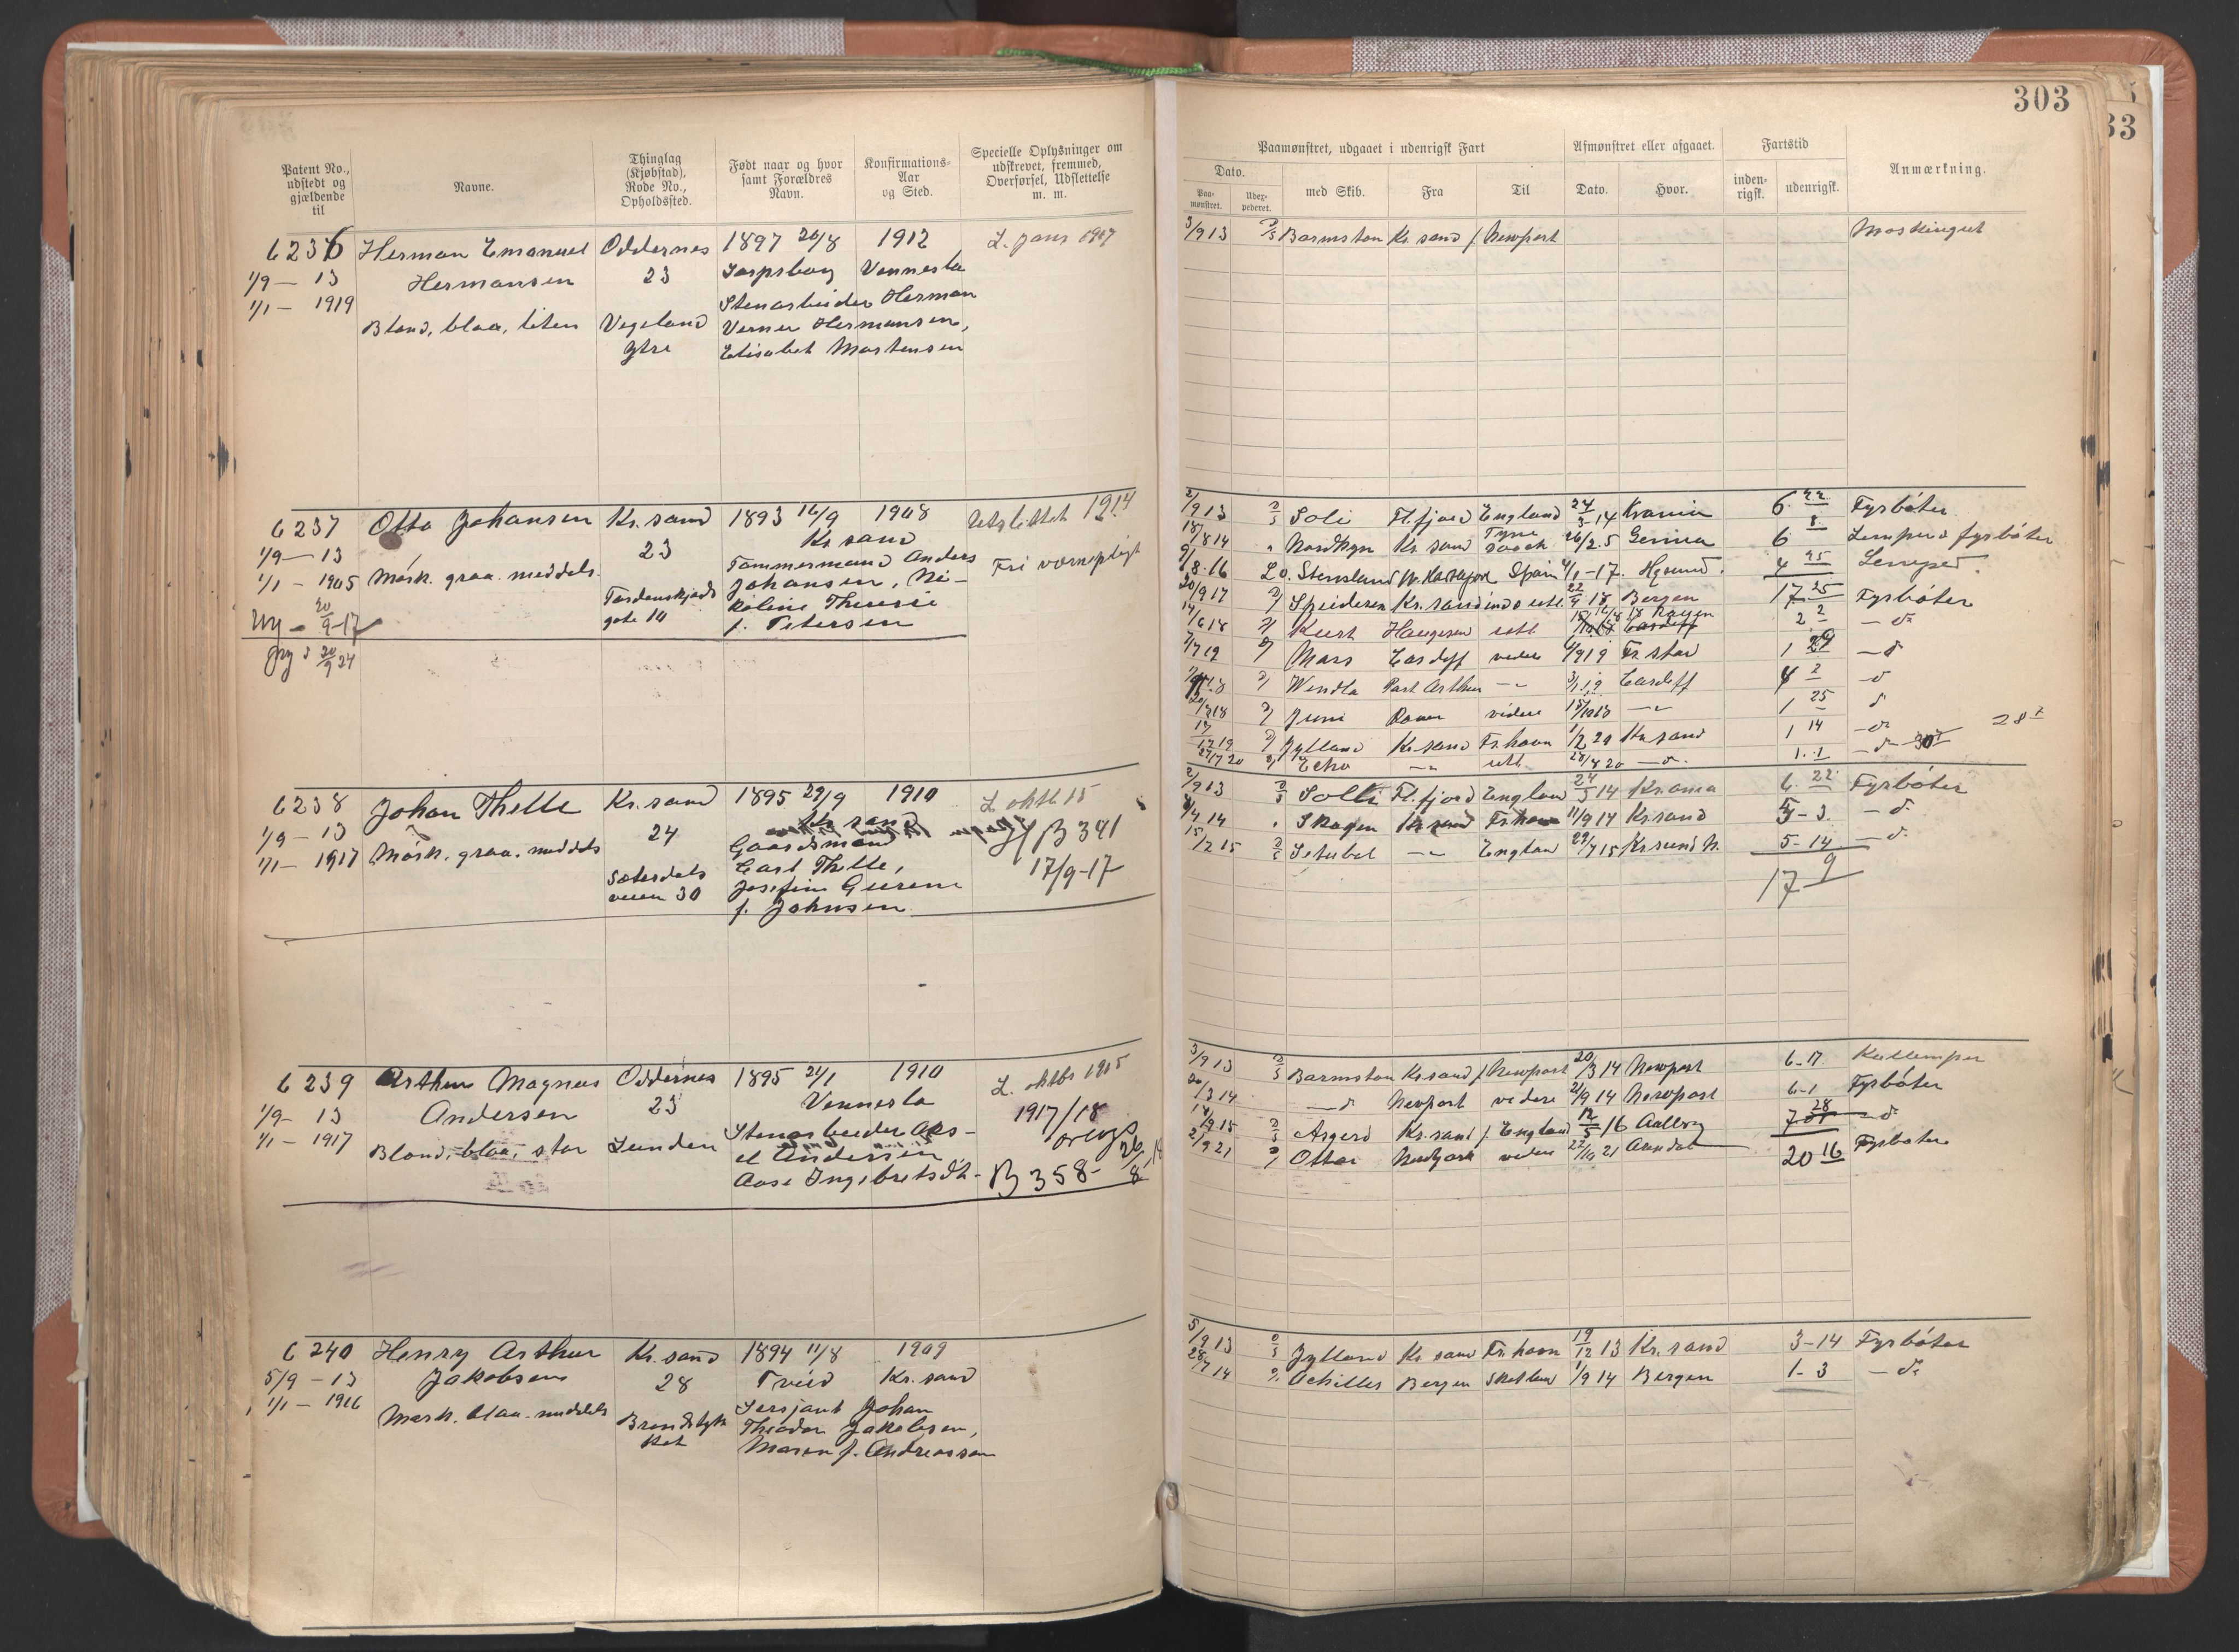 303
33
Patent No., udstedt og gjældende til
Navne.
Thinglag (Kjøbstad), Rode No., Opholdssted.
Født naar og hvor samt Forældres Navn.
Konfirmations-Aar og Sted.
Specielle Oplysninger om udskrevet, fremmed, Overførsel, Udslettelse m. m.
Paamønstret, udgaaet i udenrigsk Fart
Afmønstret eller afgaaet.
Fartstid
Anmærkning.
Dato.
Paa-mønstret.
med Skib.
Fra
Til
Dato.
Hvor.
inden-rigsk.
udenrigsk.
6236 Herman Emanuel Oddernes 1897 20/8 1912 L. Jans 1917
1/9 — 13 Hermansen 23 Sarpsborg Vennesla
1/1 — 1919 Stenarbeider Herman
Blond, blaa, liten Vegeland Verner Hermansen,
Ytre Elisabet Mortensen
3/9 13 Barmston Kr. sand / Newport
6237 Otto Johansen Kr. sand 1893 16/9 1908 Udslettet 1914
1/9 — 13 23 Kr sand
1/1 — 1905 Mørk. graa. meddels. Tømmermand Anders Fri værnepligt
Tordenskjolds Johansen, Ni-
gate 10 koline Theresie
f. Petersen
Ny — 20/9-17
20/9 24
2/9 13 Soli Fl.fjord England 24/3-14
6 22 Fyrbøter
18/8 14 Nordkyn Kr sand Tyne 26/2.5
6 8 Lemper o fyrbøter
8.16 Stensland Spain 4/1-17
4 25 Lemper.
20/9 17 Spideren Kr. sand 22/9 18 Bergen 17 25 Fyrbøter
14/6 18 Kurt Haugesund utl 2 2 — do
7/7 19 Mars Cardiff videre 6/9 19 Fr. stad 1 29 — d
Wendla Port Arthur — 3/1 19 Cardiff 4 2 — d
Juni Rouen videre 15/10 18 — 1 25 d
12 19 Jylland Kr. sand Fr.havn 1/2 20 Kr. sand 1 14 — do
Echo — utl 28/8 20 — d. 1. 1 — d
6238 Johan Thelle Kr. sand 1895 29/9 1910 L. oktb 15
1/9 — 13 24 Kr sand B 391
1/1 — 1917 Mørk. graa. meddels Gaardsmand 17/9-17
Sætesdals Carl Thelle,
veien 30 Josefine
f. Johnsen
2/9 13 Solli Fl.fjord England 24/3 14 6. 22 Fyrbøter
4 14 Skagen Kr sand Fr havn 11/9 14 Kr sand 5 - 3. — d.
15/2 15 Setubal — England 29/7 15 Kr sund N. 5-14 — d.
17 9
6239 Arthur Magnus Oddernes 1895 21/1 1910 L. oktbr 1915
1/9 — 13 Andersen 23 Vennesla 1917/18
1/1 — 1917 Stenarbeider Aks-
Blond, blaa, stor Lunden el Andersen
Aase Ingebretsdt- B 358-
3/9 13 Barmston Kr sand / Newport 20/3 14 Newport 6-17 Kullemper
20/3 14 — d Newport videre 2/9 14 Newport 6-1 Fyrbøter
9 15 Asgerd Kr. sand / England 12/5 16 Aalborg 7 28 — d
2/9 21 Ottar Newyork videre 27/10 21 Arendal 20 16 Fyrbøter
6240 Henry Arthur Kr. sand 1894 11/8 1909
5/9 — 13 Jakobsen 28 Tveid Kr. sand
1/1 — 1916 Sersjant Johan
Mørk. blaa. meddels Theodor Jakobsen,
Maren f. Andreassen
5/9 13 Jylland Kr sand Fr. havn 19/12 13 Kr. sand 3-14 Fyrbøter
28/7 14 Achilles Bergen Skotland 1/9 14 Bergen 1- 3 — do